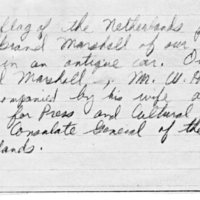 flag of the Netherlands
Grand Marshall of our
in an antique car. Our
Marshall, Mr. W. H
companied by his wife a
for Press and Cultural
Consulate General of the
lands.